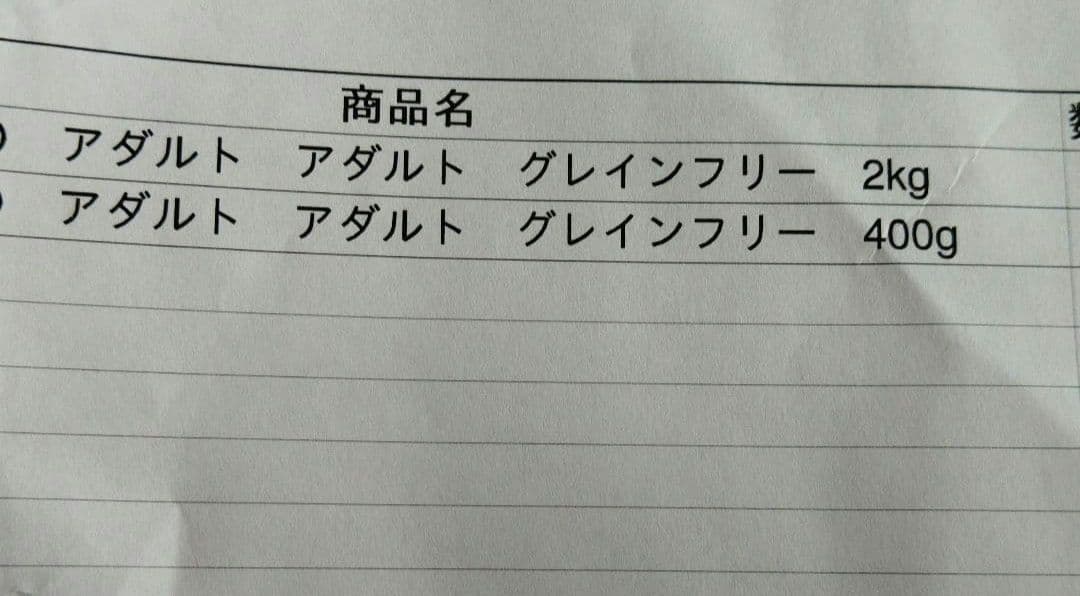 商品名
アダルト　アダルト　グレインフリー　2kg
アダルト　アダルト　グレインフリー　400g